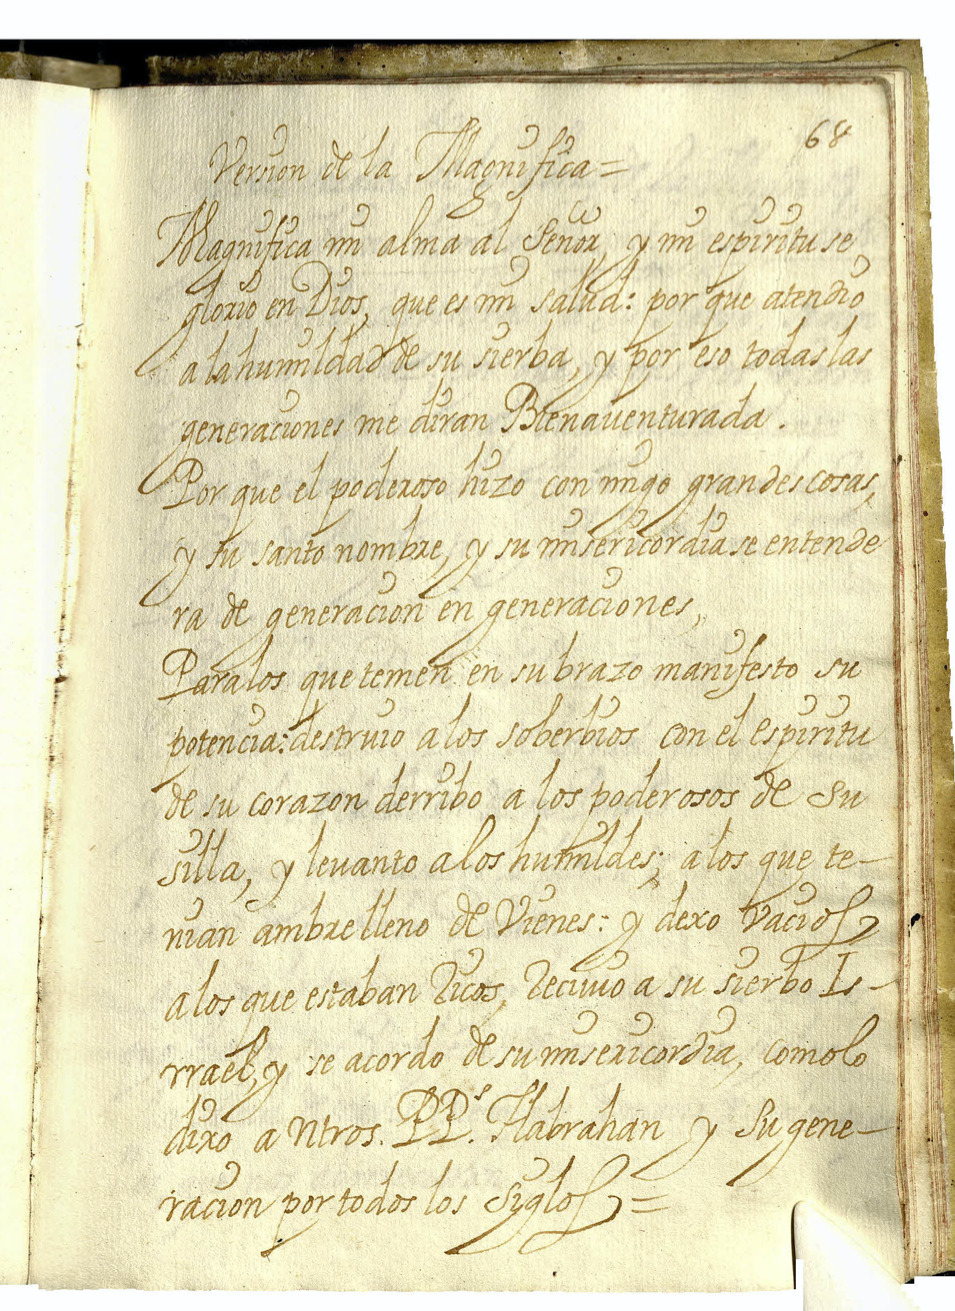 68
Version de la Magnifica=
Magnifica mi alma al Señor, y mi espiritu se
glorio en Dios, que es mi salud: por que atendio
a la humildad de su sierba, y por eso todas las
generaciones me diran Bienaventurada.
Por que el poderoso hizo con migo grandes cosas,
y su santo nombre, y su misericordia se entende
ra de generacion en generaciones,
Para los que temen en su brazo manifesto su
potencia: destruio a los soberbios con el espiritu
de su corazon derribo a los poderosos de su
silla, y levanto a los humildes; a los que te-
nian ambre lleno de Vienes: y dexo vacios
a los que estaban Ricos, Reciuio a su sierbo Is-
rrael, y se acordo de su misericordia, como lo
dixo a Ntros. PP.s Habrahan y Su gene-
racion por todos los Syglos=